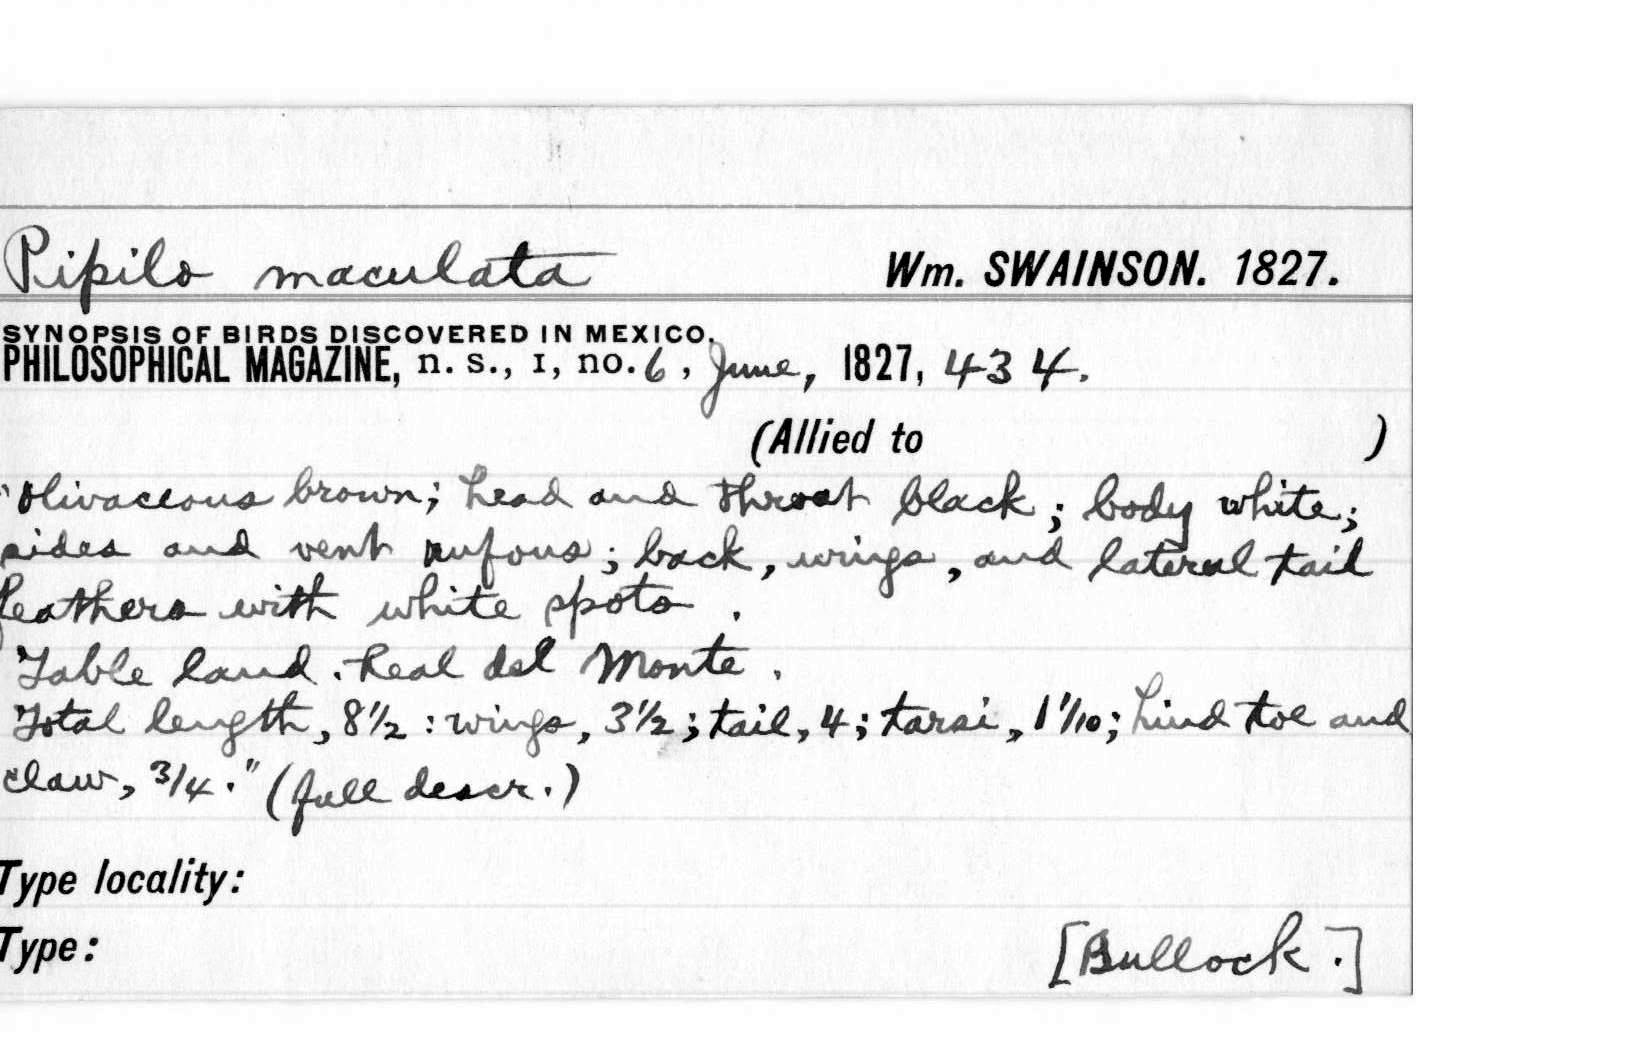 Pipilo maculata Wm. SWAINSON. 1827.
SYNOPSIS OF BIRDS DISCOVERED IN MEXICO.
PHILOSOPHICAL MAGAZINE, n. s., I, no. 6, June, 1827, 434.
(Allied to )
"Olivaceous brown; head and throat black; body white;
sides and vent rufous; back, wings, and lateral tail
feathers with white spots.
Table land. Real del Monte.
Total length, 8½ : wings, 3½; tail, 4; tarsi, 1 1/10; hind toe and
claw, ¾." (full descr.)
Type locality:
Type: [Bullock.]